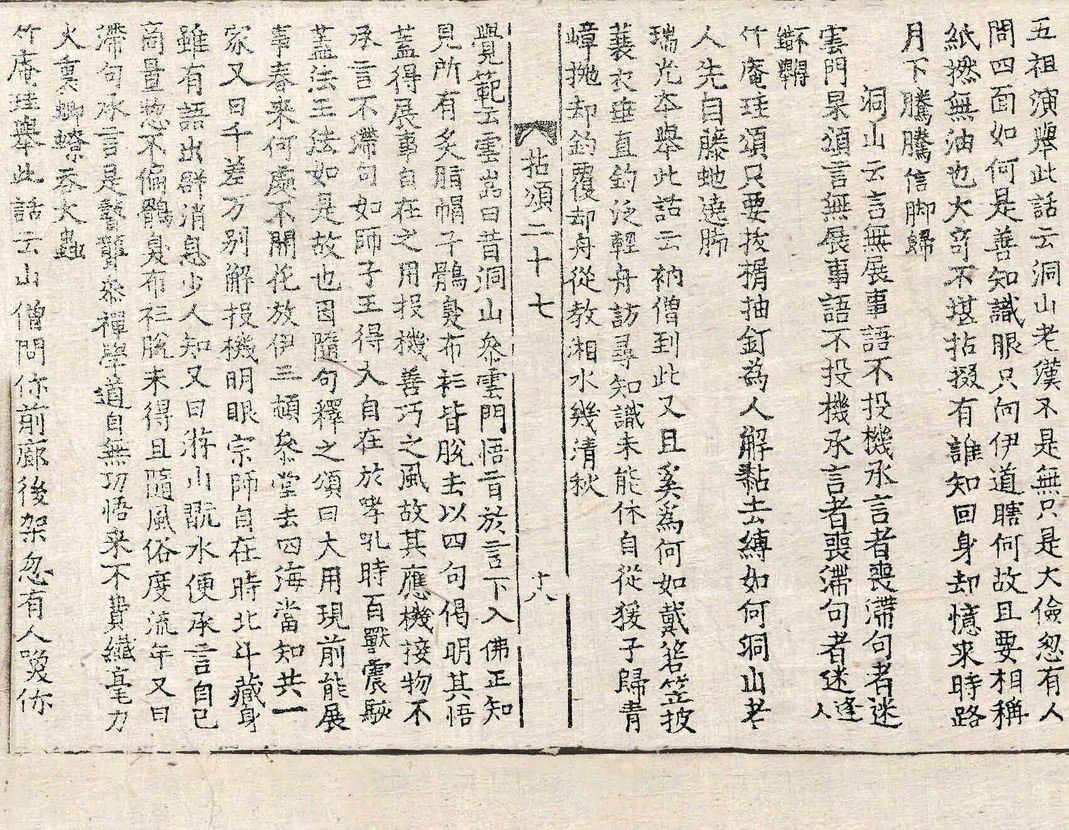 五祖演舉此話云洞山老漢不是無只是大儉忽有人
問四面如何是善知識眼只向伊道瞎何故且要相稱
紙撚無油也大奇不堪拈掇有誰知回身却憶来時路
月下騰騰信脚歸
洞山云言無展事語不投機承言者喪滯句者迷
雲門杲頌言無展事語不投機承言者喪滯句者迷逢人
竹庵珪頌只要拔楔抽釘為人解黏去縛如何洞山老
人先自藤虵遶脚
瑞光本舉此話云衲僧到此又且奚為何如戴箬笠披
蓑衣垂直釣泛輕舟訪尋知識未能休自從猨子歸青
嶂抛却釣覆却舟從教湘水幾清秋
拈頌二十七
十八
覺範云雲嵓曰昔洞山叅雲門悟旨於言下入佛正知
見所有炙脂帽子鶻臭布衫皆脫去以四句偈明其悟
蓋得展事自在之用投機善巧之風故其應機接物不
承言不滯句如師子王得大自在於哮吼時百獸震駭
蓋法王法如是故也因隨句釋之頌曰大用現前能展
事春来何處不開花放伊三頓叅堂去四海當知共一
家又曰千差万別解投機明眼宗師自在時北斗藏身
雖有語出群消息少人知又曰游山翫水便承言自己
商量惣不偏鶻臭布衫脫未得且隨風俗度流年又曰
滯句承言是瞽聾叅禪學道自無功悟来不費纖毫力
火裏蝍蟟吞大蟲
竹庵珪舉此話云山僧問你前廊後架忽有人喚你